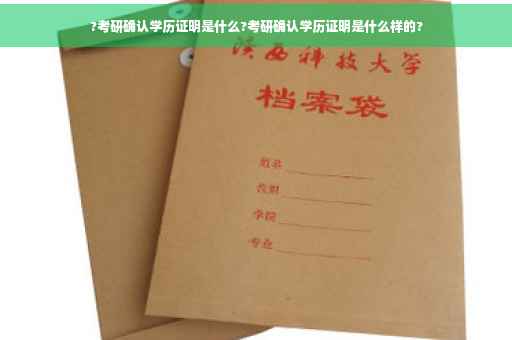 ?考研确认学历证明是什么?考研确认学历证明是什么样的?
陕西科技大学
档案袋
姓名
学院
专业